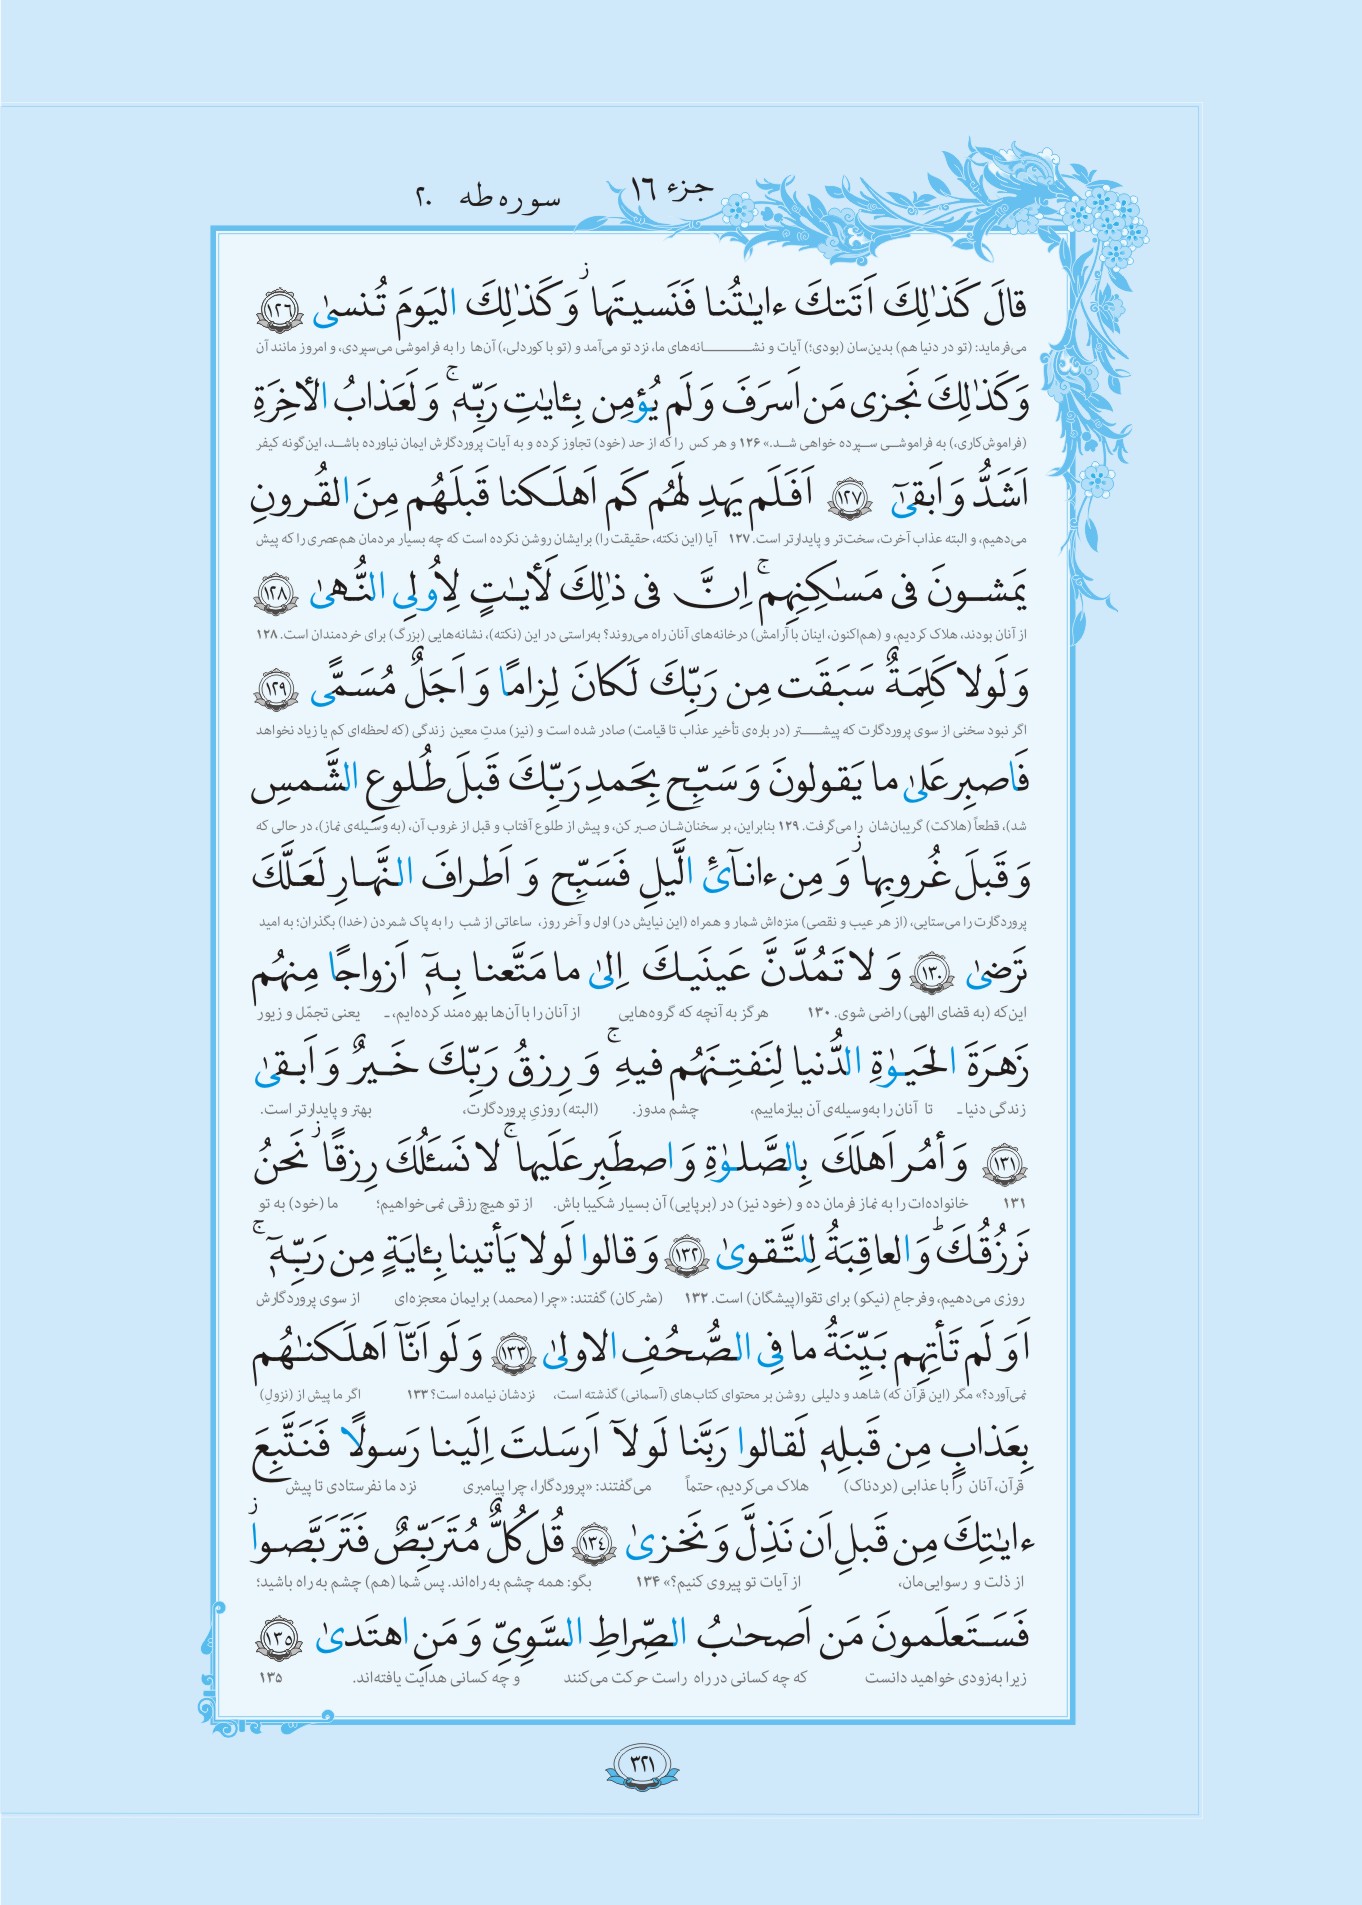 جزء ١٦
سوره طه ٢٠
قالَ كَذٰلِكَ اَتَتكَ ءايٰتُنا فَنَسيتَها ۖ وَ كَذٰلِكَ اليَومَ تُنسىٰ ١٢٦
می‌فرماید: (تو در دنیا هم) بدین‌سان (بودی؛) آیات و نشـــانه‌های ما، نزد تو می‌آمد و (تو با کوردلی،) آن‌ها را به فراموشی می‌سپردی، و امروز مانند آن
وَ كَذٰلِكَ نَجزى مَن اَسرَفَ وَ لَم يُؤمِن بِـٔايٰتِ رَبِّهٖ ۚ وَ لَعَذابُ الأخِرَةِ
(فراموش‌کاری،) به فراموشی سپرده خواهی شد.» ۱۲۶ و هر کس را که از حد (خود) تجاوز کرده و به آیات پروردگارش ایمان نیاورده باشد، این‌گونه کیفر
اَشَدُّ وَ اَبقىٰٓ ١٢٧ اَفَلَم يَهدِ لَهُم كَم اَهلَكنا قَبلَهُم مِنَ القُرونِ
می‌دهیم، و البته عذاب آخرت، سخت‌تر و پایدارتر است. ۱۲۷ آیا (این نکته، حقیقت را) برایشان روشن نکرده است که چه بسیار مردمان هم‌عصری را که پیش
يَمشونَ فى مَسٰكِنِهِم ۚ اِنَّ فى ذٰلِكَ لَأيٰتٍ لِاُولِى النُّهىٰ ١٢٨
از آنان بودند، هلاک کردیم، و (هم‌اکنون، اینان با آرامش) در خانه‌های آنان راه می‌روند؟ به‌راستی در این (نکته)، نشانه‌هایی (بزرگ) برای خردمندان است. ۱۲۸
وَ لَولا كَلِمَةٌ سَبَقَت مِن رَبِّكَ لَكانَ لِزامًا وَ اَجَلٌ مُسَمًّى ١٢٩
اگر نبود سخنی از سوی پروردگارت که پیشـــتر (در باره‌ی تأخیر عذاب تا قیامت) صادر شده است و (نیز) مدتِ معین زندگی (که لحظه‌ای کم یا زیاد نخواهد
فَاصبِر عَلىٰ ما يَقولونَ وَ سَبِّح بِحَمدِ رَبِّكَ قَبلَ طُلوعِ الشَّمسِ
شد)، قطعاً (هلاکت) گریبان‌شان را می‌گرفت. ۱۲۹ بنابراین، بر سخنان‌شان صبر کن، و پیش از طلوع آفتاب و قبل از غروب آن، (به وسیله‌ی نماز)، در حالی که
وَ قَبلَ غُروبِها ۖ وَ مِن ءانآئِ الَّيلِ فَسَبِّح وَ اَطرافَ النَّهارِ لَعَلَّكَ
پروردگارت را می‌ستایی، (از هر عیب و نقصی) منزه‌اش شمار و همراه (این نیایش در) اول و آخر روز، ساعاتی از شب را به پاک شمردن (خدا) بگذران؛ به امید
تَرضىٰ ١٣٠ وَ لا تَمُدَّنَّ عَينَيكَ اِلىٰ ما مَتَّعنا بِهٖٓ اَزواجًا مِنهُم
این‌که (به قضای الهی) راضی شوی. ۱۳۰ هرگز به آنچه که گروه‌هایی از آنان را با آن‌ها بهره‌مند کرده‌ایم، ـ یعنی تجمّل و زیور
زَهرَةَ الحَيوٰةِ الدُّنيا لِنَفتِنَهُم فيهِ ۚ وَ رِزقُ رَبِّكَ خَيرٌ وَ اَبقىٰ
زندگی دنیا ـ تا آنان را به‌وسیله‌ی آن بیازماییم، چشم مدوز. (البته) روزیِ پروردگارت، بهتر و پایدارتر است.
١٣١ وَ أمُر اَهلَكَ بِالصَّلوٰةِ وَ اصطَبِر عَلَيها ۚ لا نَسـَٔلُكَ رِزقًا ۖ نَحنُ
۱۳۱ خانواده‌ات را به نماز فرمان ده و (خود نیز) در (برپایی) آن بسیار شکیبا باش. از تو هیچ رزقی نمی‌خواهیم؛ ما (خود) به تو
نَرزُقُكَ ۗ وَ العاقِبَةُ لِلتَّقوىٰ ١٣٢ وَ قالوا لَولا يَأتينا بِـٔايَةٍ مِن رَبِّهٖٓ ۚ
روزی می‌دهیم، و فرجامِ (نیکو) برای تقوا(پیشگان) است. ۱۳۲ (مشرکان) گفتند: «چرا (محمد) برایمان معجزه‌ای از سوی پروردگارش
اَوَ لَم تَأتِهِم بَيِّنَةُ ما فِى الصُّحُفِ الاولىٰ ١٣٣ وَ لَو اَنّآ اَهلَكنٰهُم
نمی‌آورد؟» مگر (این قرآن که) شاهد و دلیلی روشن بر محتوای کتاب‌های (آسمانی) گذشته است، نزدشان نیامده است؟ ۱۳۳ اگر ما پیش از (نزولِ)
بِعَذابٍ مِن قَبلِهٖ لَقالوا رَبَّنا لَولآ اَرسَلتَ اِلَينا رَسولًا فَنَتَّبِعَ
قرآن، آنان را با عذابی (دردناک) هلاک می‌کردیم، حتماً می‌گفتند: «پروردگارا، چرا پیامبری نزد ما نفرستادی تا پیش
ءايٰتِكَ مِن قَبلِ اَن نَذِلَّ وَ نَخزىٰ ١٣٤ قُل كُلٌّ مُتَرَبِّصٌ فَتَرَبَّصوا ۖ
از ذلت و رسوایی‌مان، از آیات تو پیروی کنیم؟» ۱۳۴ بگو: همه چشم به راه‌اند. پس شما (هم) چشم به راه باشید؛
فَسَتَعلَمونَ مَن اَصحٰبُ الصِّراطِ السَّوِىِّ وَ مَنِ اهتَدىٰ ١٣٥
زیرا به‌زودی خواهید دانست که چه کسانی در راه راست حرکت می‌کنند و چه کسانی هدایت یافته‌اند. ۱۳۵
٣٢١